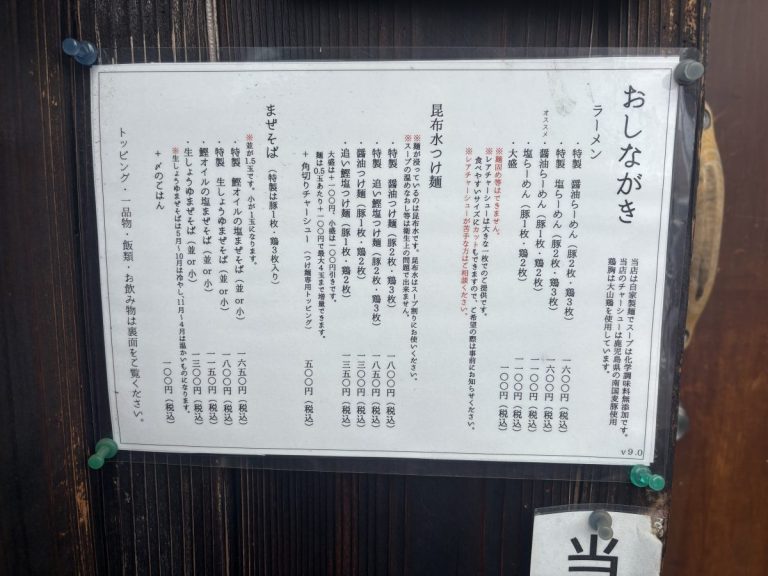 おしながき
当店は自家製麺でスープは化学調味料無添加です。
当店のチャーシューは鹿児島県の南国麦豚使用
鶏胸は大山鶏を使用しています。
ラーメン
・特製 醤油らーめん（豚2枚・鶏3枚） 一六〇〇円（税込）
・特製 塩らーめん（豚2枚・鶏3枚） 一六〇〇円（税込）
オススメ
・醤油らーめん（豚1枚・鶏2枚） 一一〇〇円（税込）
・塩らーめん（豚1枚・鶏2枚） 一一〇〇円（税込）
・大盛 一〇〇円（税込）
※麺固め等はできません。
※レアチャーシューは大きな一枚でのご提供です。
食べやすいサイズにカットもできますので、ご希望の際は事前にお知らせください。
※レアチャーシューが苦手な方はご相談ください。
昆布水つけ麺
※麺が浸っているのは昆布水です。昆布水はスープ割りにお使いください。
※スープの温めなおし等は衛生上の問題で出来ません。
・特製 醤油つけ麺（豚2枚・鶏3枚） 一八〇〇円（税込）
・特製 追い鰹塩つけ麺（豚2枚・鶏3枚） 一八五〇円（税込）
・醤油つけ麺（豚1枚・鶏2枚） 一三〇〇円（税込）
・追い鰹塩つけ麺（豚1枚・鶏2枚） 一三五〇円（税込）
大盛は＋一〇〇円、小盛は一〇〇円引きです。
麺は0.5玉あたり＋一〇〇円で最大4玉まで増量できます。
＋角切りチャーシュー（つけ麺専用トッピング） 五〇〇円（税込）
まぜそば（特製は豚1枚・鶏3枚入り）
※並が1.5玉です。小が1玉になります。
・特製 鰹オイルの塩まぜそば（並 or 小） 一六五〇円（税込）
・特製 生しょうゆまぜそば（並 or 小） 一八〇〇円（税込）
・鰹オイルの塩まぜそば（並 or 小） 一一五〇円（税込）
・生しょうゆまぜそば（並 or 小） 一三〇〇円（税込）
※生しょうゆまぜそばは5月～10月は冷やし、11月～4月は温かいものになります。
＋〆のごはん 一〇〇円（税込）
トッピング・一品物・飯類・お飲み物は裏面をご覧ください。
v9.0
当